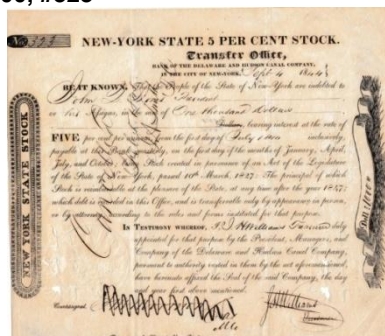 No. 323
NEW-YORK STATE 5 PER CENT STOCK.
Transfer Office,
BANK OF THE DELAWARE AND HUDSON CANAL COMPANY,
IN THE CITY OF NEW-YORK, Sept 4 1844
BE IT KNOWN, That the People of the State of New-York are indebted to
John
or his Assigns, in the sum of One thousand Dollars
bearing interest at the rate of
FIVE per cent per annum from the first day of July inclusively,
payable at the Bank quarterly, on the first days of the months of January, April,
July, and October, being Stock created in pursuance of an Act of the Legislature
of the State of New-York, passed 10th March, 1827. The principal of which
Stock is reimbursable at the pleasure of the State, at any time after the year 1847;
which debt is recorded in this Office, and is transferable only by appearance in person,
or by attorney, according to the rules and forms instituted for that purpose.
In Testimony whereof, Williams duly
appointed for that purpose by the President, Managers, and
Company of the Delaware and Hudson Canal Company,
pursuant to authority vested in them by the act aforementioned,
have hereunto affixed the Seal of the said Company, the day
and year first above mentioned.
Countersigned,
Williams
NEW YORK STATE STOCK